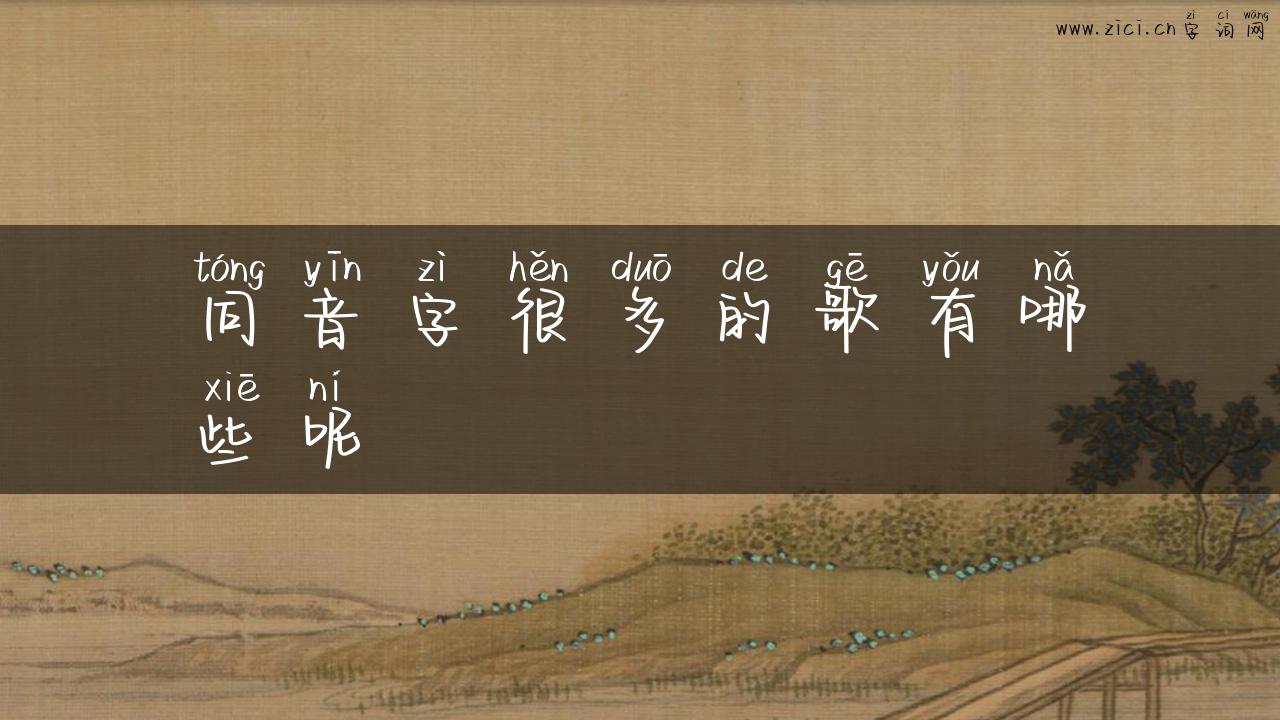 zì cí wǎng
www.zici.cn 字词网
tóng yīn zì hěn duō de gē yǒu nǎ
同音字很多的歌有哪
xiē ní
些呢